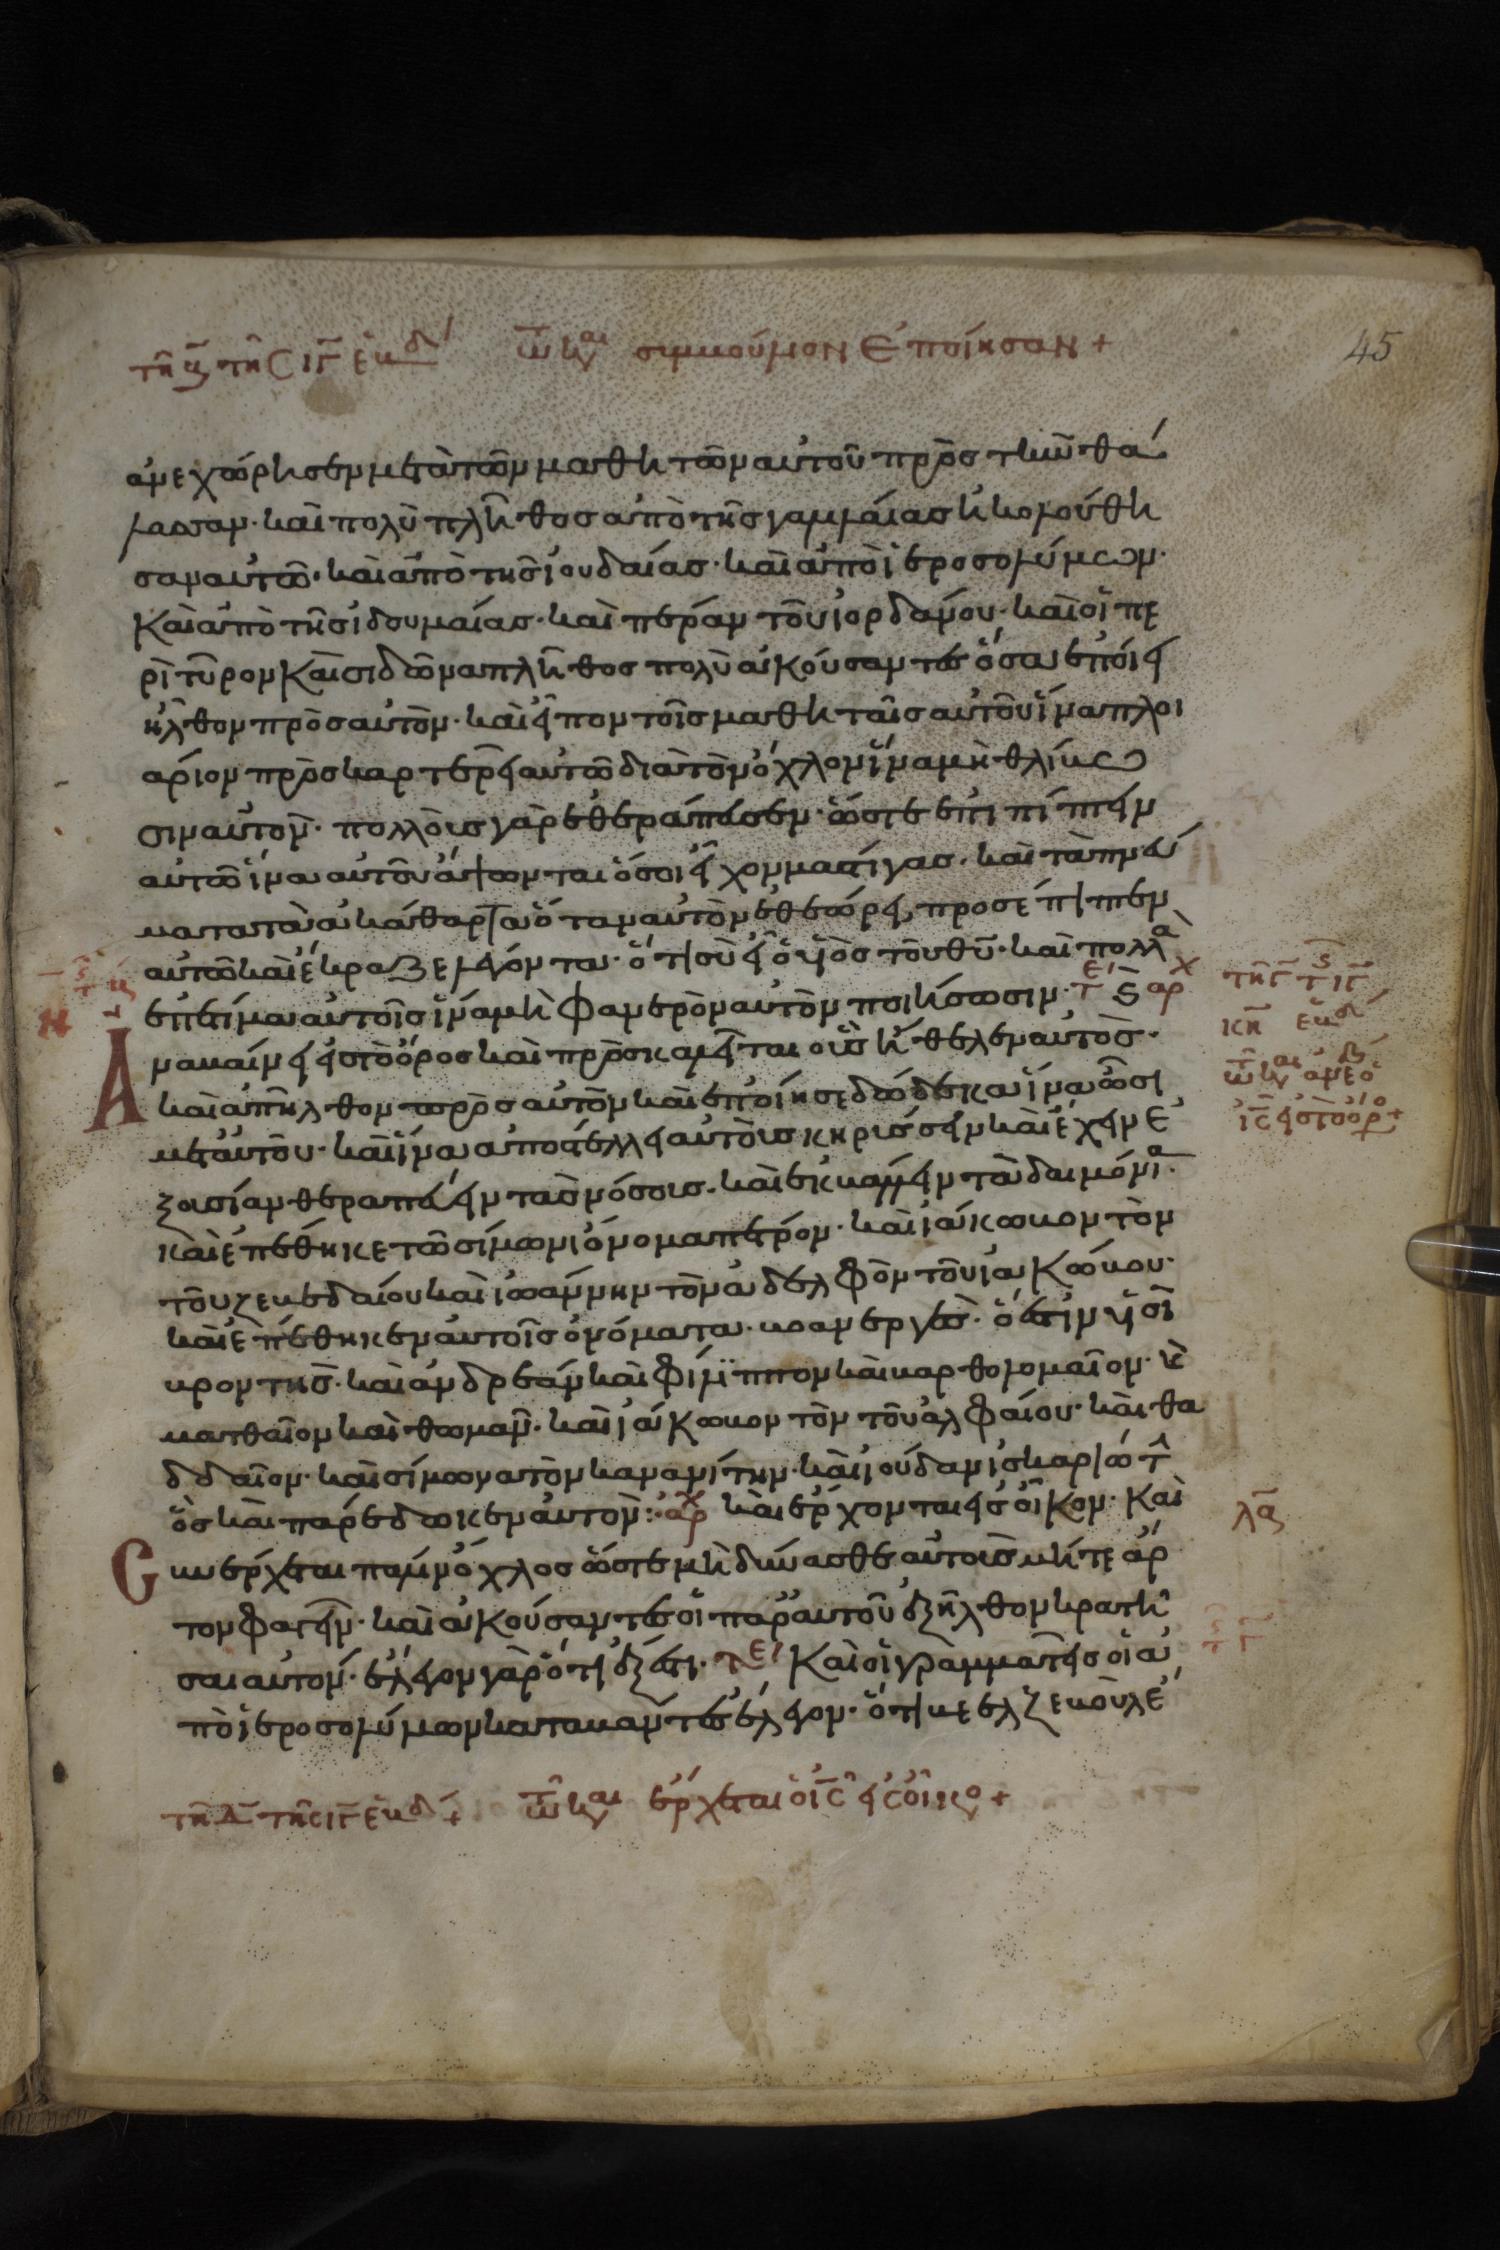 τῆ β̄ τῆς ιγ ἑβδ τῶ κ αι συμβούμον ἐποίησαν +
45
ἀνεχώρησεν μετὰ τῶν μαθητῶν αὐτοῦ πρὸς τὴν θά
λασσαν· καὶ πολὺ πλῆθος ἀπὸ τῆς γαλιλαίας ἠκολούθη
σαν αὐτῶ· καὶ ἀπὸ τῆς ἰουδαίας· καὶ ἀπὸ ἱεροσολύμων·
Καὶ ἀπὸ τῆς ἰδουμαίας· καὶ πέραν τοῦ ἰορδάνου· καὶ οἱ πε
ρὶ τῦρον καὶ σιδῶνα πλῆθος πολὺ ἀκούσαντες ὅσα ἐποίει
ἦλθον πρὸς αὐτὸν· καὶ εἶπον τοῖς μαθηταῖς αὐτοῦ ἵνα πλοι
άριον πρὸσκαρτερεῖ αὐτῶ διὰ τὸν ὄχλον ἵνα μὴ θλίβω
σιν αὐτόν· πολλοὺς γὰρ ἐθεράπευσεν· ὥστε ἐπιπίπτειν
αὐτῶ ἵνα αὐτοῦ ἅψωνται ὅσοι εἶχον μάστιγας· καὶ τὰ πνεύ
ματα τὰ ἀκάθαρτα ὅταν αὐτὸν ἐθεώρει, προσέπιπτεν
αὐτῶ καὶ ἔκραζε λέγοντα· ὅτι σὺ εἶ ὁ υἱὸς τοῦ θῡ· καὶ πολλὰ
ἐπετίμα αὐτοῖς ἵνα μὴ φανερὸν αὐτὸν ποιήσωσιν· τε ς αρχ
Ἀναβαίνει εἰς τὸ ὄρος καὶ πρὸσκαλεῖται οὓς ἤθελεν αὐτὸς·
καὶ ἀπῆλθον πρὸς αὐτὸν καὶ ἐποίησε δώδεκα ἵνα ὦσι
μετ᾽ αὐτοῦ· καὶ ἵνα ἀποστέλλει αὐτοὺς κηρύσσειν καὶ ἔχειν ἐ
ξουσίαν θεραπεύειν τὰς νόσους· καὶ ἐκβάλλειν τὰ δαιμόνια·
καὶ ἐπέθηκε τῶ σίμωνι ὄνομα πέτρον· καὶ ἰάκωβον τὸν
τοῦ ζεβεδαίου καὶ ἰωάννην τὸν ἀδελφὸν τοῦ ἰακώβου·
καὶ ἐπέθηκεν αὐτοῖς ὀνόματα· βοανεργὲς· ὅ ἐστιν υἱοὶ
βροντῆς· καὶ ἀνδρέαν καὶ φίλιππον καὶ βαρθολομαῖον· κ
ματθαῖον καὶ θωμᾶν· καὶ ἰάκωβον τὸν τοῦ ἀλφαίου· καὶ θα
δδαῖον· καὶ σίμωνα τὸν κανανίτην· καὶ ἰούδαν ἰσκαριώτ
ὃς καὶ παρέδωκεν αὐτόν: αρχ καὶ ἔρχονται εἰς οἶκον· Καὶ
Συνέρχεται πάλιν ὄχλος ὥστε μὴ δύνασθε αὐτοὺς μήτε ἄρ
τον φαγεῖν· καὶ ἀκούσαντες οἱ παρ᾽ αὐτοῦ ἐξῆλθον κρατῆ
σαι αὐτόν· ἔλεγον γὰρ ὅτι ἐξέστι· τε Καὶ οἱ γραμματεῖς οἱ ἀ
πὸ ἱεροσολύμων καταβάντες ἔλεγον· ὅτι βεελζεβοὺλ ἔ
τῆ γ τ ς ιγ
κη ἑβδ
τῶ κ αι ἀνέβ ὁ
ἰς εἰς τὸ ὄρ +
λα
τ γ
τῆ Δ τῆς ιγ ἑβδ + τῶ κ αι ἔρχεται ὁ ἰς εἰς οἶκο +